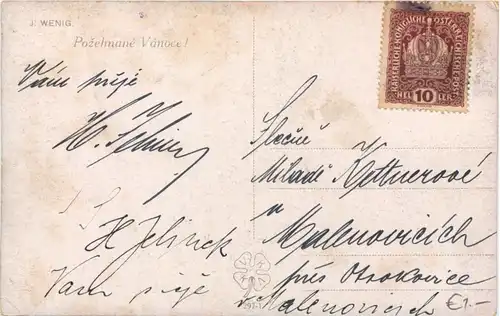 J. WENIG.
Požehnané Vánoce!
Vám přeje
H. Jelinek
Vam přeje
KAISERLICHE KÖNIGLICHE ÖSTERREICHISCHE POST
HEL 10 LER
Slečně
Miladě Kettnerové
u
Malenovicích
přes Otrokovice
Malenovicich
€1.-